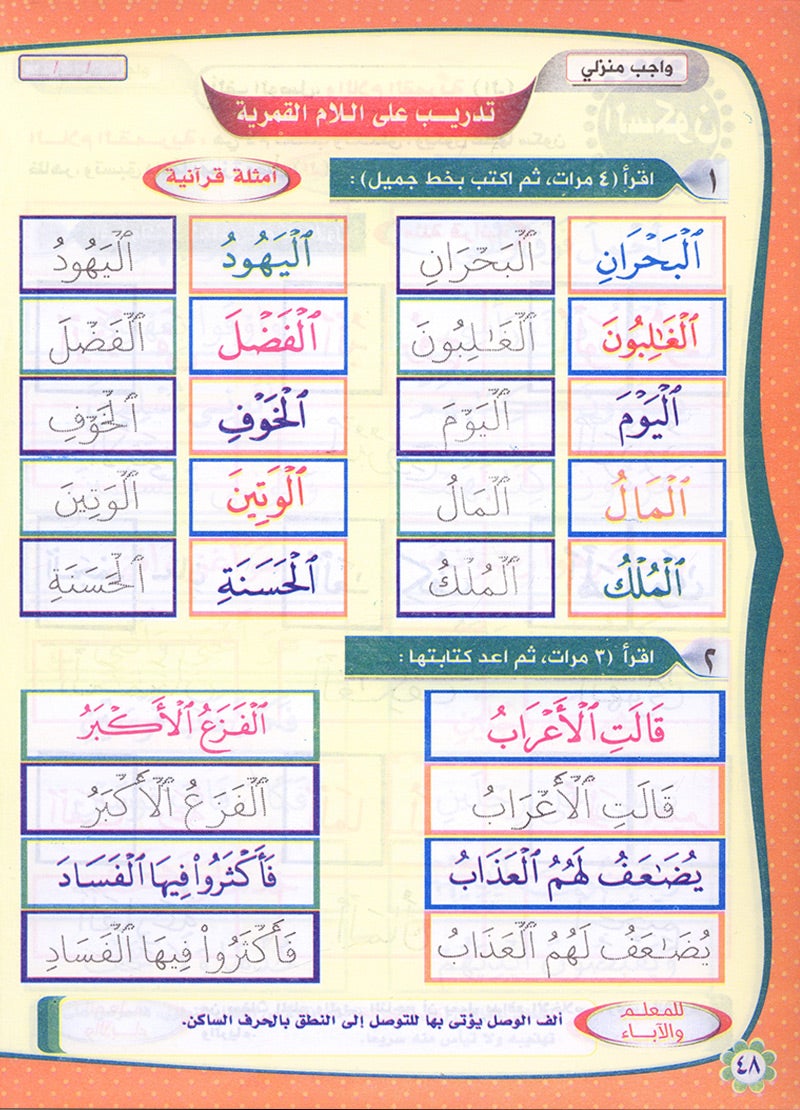 واجب منزلي
/ /
تدريب على اللام القمرية
١ اقرأ (٤ مرات، ثم اكتب بخط جميل) : أمثلة قرآنية
ٱلْبَحْرَانِ ٱلْبَحْرَانِ ٱلْيَهُودُ ٱلْيَهُودُ
ٱلْغَـٰلِبُونَ ٱلْغَـٰلِبُونَ ٱلْفَضْلَ ٱلْفَضْلَ
ٱلْيَوْمَ ٱلْيَوْمَ ٱلْخَوْفِ ٱلْخَوْفِ
ٱلْمَالُ ٱلْمَالُ ٱلْوَتِينَ ٱلْوَتِينَ
ٱلْمُلْكُ ٱلْمُلْكُ ٱلْحَسَنَةِ ٱلْحَسَنَةِ
٢ اقرأ (٣ مرات، ثم اعد كتابتها :
قَالَتِ ٱلْأَعْرَابُ ٱلْفَزَعُ ٱلْأَكْبَرُ
قَالَتِ ٱلْأَعْرَابُ ٱلْفَزَعُ ٱلْأَكْبَرُ
يُضَـٰعَفُ لَهُمُ ٱلْعَذَابُ فَأَكْثَرُوا۟ فِيهَا ٱلْفَسَادَ
يُضَـٰعَفُ لَهُمُ ٱلْعَذَابُ فَأَكْثَرُوا۟ فِيهَا ٱلْفَسَادِ
للمعلم والآباء
ألف الوصل يؤتى بها للتوصل إلى النطق بالحرف الساكن.
٤٨